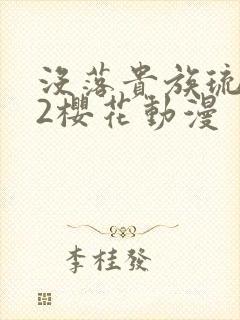 沒落貴族琉
2櫻花動漫
李桂發